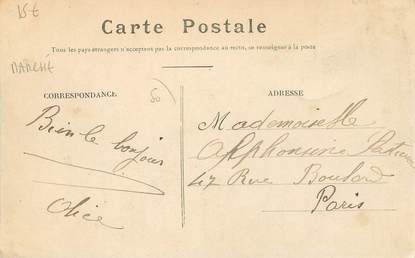 15€
Carte Postale
Tous les pays étrangers n'acceptent pas la correspondance au recto, se renseigner à la poste
MARCHÉ
CORRESPONDANCE
50
ADRESSE
Bien le bonjour
Mademoiselle
Alphonsine
47 Rue Boulard
Paris